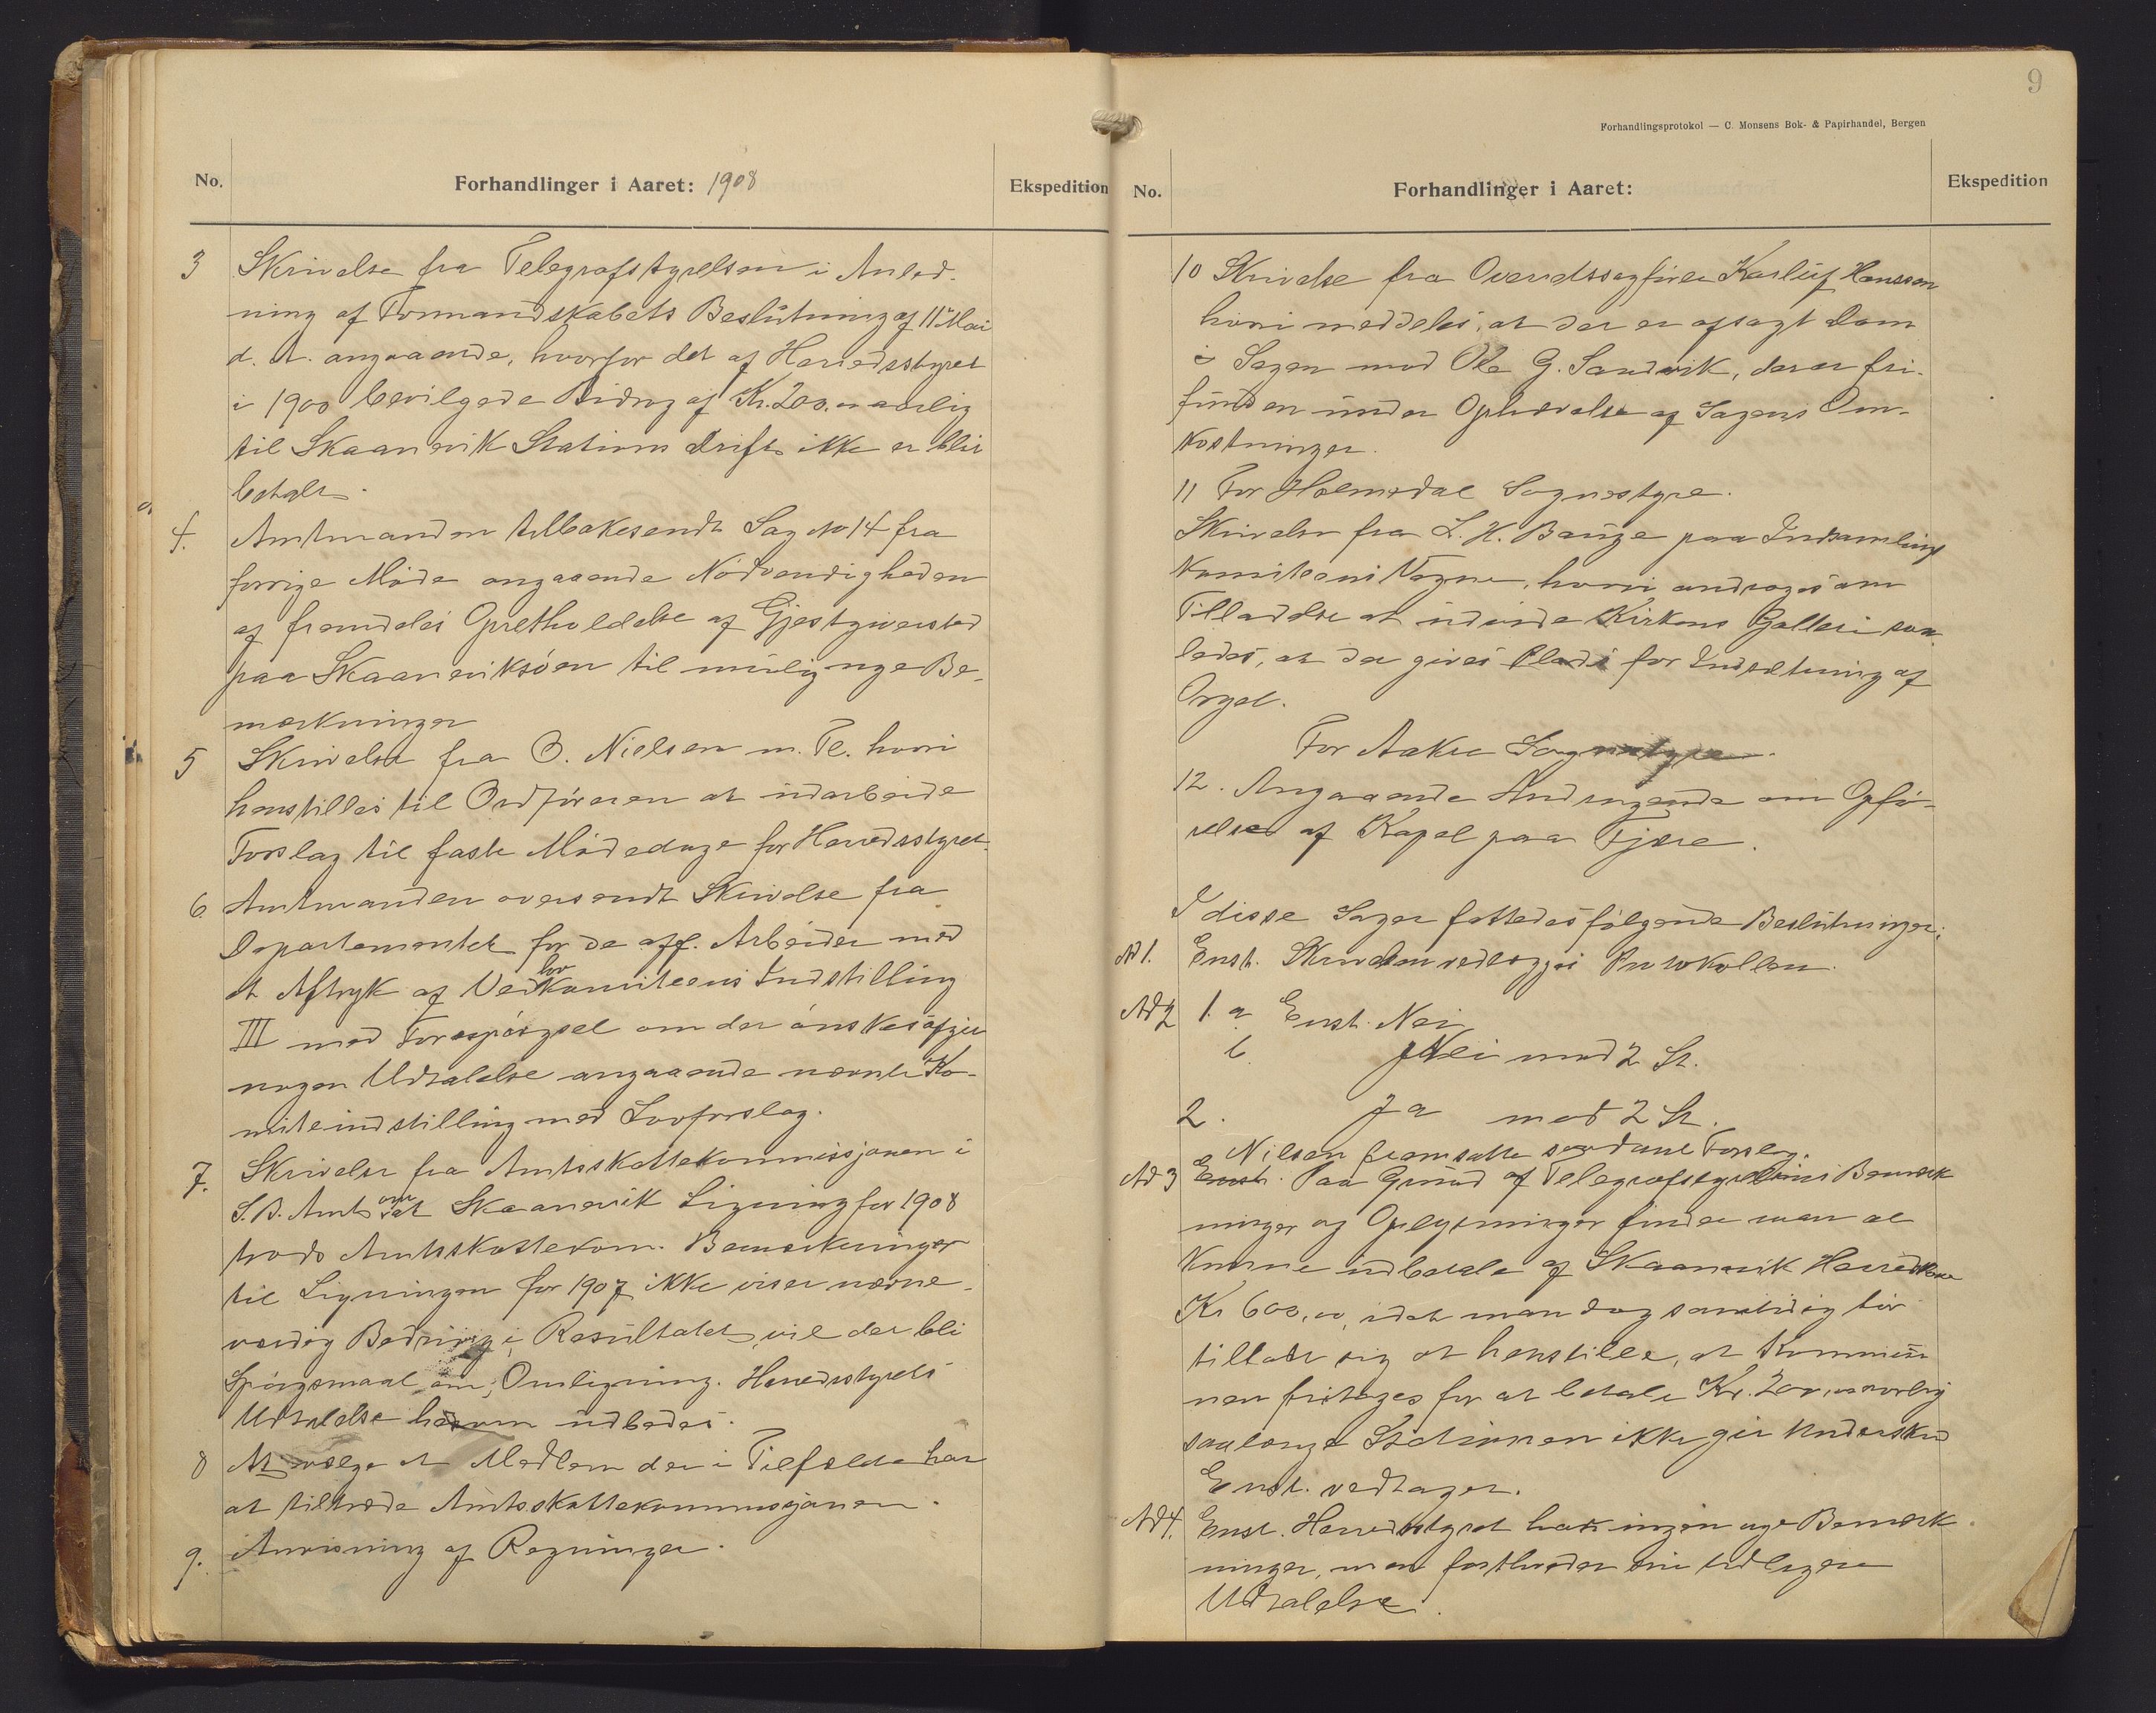 No.
Forhandlinger i Aaret: 1908
Ekspedition
3 Skrivelse fra Telegrafstyrelsen i Anled-
ning af Formandskabets Beslutning af 11te Mai
d. A. angaaende, hvorfor det af Herredsstyret
i 1900 bevilgede Bidrag af Kr. 200,00 aarlig
til Skaanevik Stations Drift ikke er blit
betalt.
4. Amtmanden tilbakesendt Sag No 14 fra
forrige Møde angaaende Nødvendigheden
af fremdeles Opretholdelse af Gjestgiversted
paa Skaaneviksøen til mulig nye Be-
mærkninger
5 Skrivelse fra O. Nielsen m. Fl. hvori
henstilles til Ordføreren at udarbeide
Forslag til faste Mødedage for Herredsstyret.
6. Amtmanden oversendt Skrivelse fra
Departementet for de off. Arbeider med
et Aftryk af Veilovkomiteens Indstilling
III med Forespørgsel om der ønskes afgiv
nogen Udtalelse angaaende nævnte Ko-
miteindstilling med Lovforslag.
7. Skrivelse fra Amtsskattekommissjonen i
S. B. Amt om at Skaanevik Ligning for 1908
trods Amtsskattekom. Bemærkninger
til Ligningen for 1907 ikke viser nævne-
værdig Bedring i Resultatet, vil der bli
Spørgsmaal om Omligning. Herredsstyrets
Udtalelse herom udbedes.
8 At vælge et Medlem der i Tilfælde har
at tiltræde Amtsskattekommissjonen.
9. Anvisning af Regninger.
9
Forhandlingsprotokol — C. Monsens Bok- & Papirhandel, Bergen
No.
Forhandlinger i Aaret:
Ekspedition
10 Skrivelse fra Overretssagfører Karluf Hanssen
hvori meddeles, at der er afsagt Dom
i Sagen mod Ole G. Sandvik, der er fri-
funden under Ophævelse af Sagens Om-
kostninger.
11 For Holmedal Sognestyre.
Skrivelse fra L. H. Bauge paa Indsamlings
Komiteens Vegne, hvori androges om
Tilladelse at udvide Kirkens Galleri saa
ledes, at der gives Plads for Indsætning af
Orgel.
For Aakre Sognestyre.
12. Angaaende Andragende om Opfø-
relse af Kapel paa Fjære.
I disse Sager fattedes følgende Beslutninger:
Ad 1. Enst. Skrivelsen vedlægges Protokollen.
Ad 2 1. a Enst. Nei
b. Nei mod 2 St.
2. Ja mod 2 St.
Nilsen fremsatte saadant Forslag.
Ad 3 Enst. Paa Grund af Telegrafstyrelsens Bemærk
ninger og Oplysninger finder man at
kunne udbetale af Skaanevik Herredskasse
Kr 600,00, idet man dog samtidig tør
tillate sig at henstille, at Kommu
nen fritages for at betale Kr. 200,00 aarlig
saalænge Stationen ikke gir Undersku
Enst. vedtaget.
Ad 4. Enst. Herredsstyret har ingen nye Bemærk
ninger, men fastholder sin tidligere
Udtalelse.